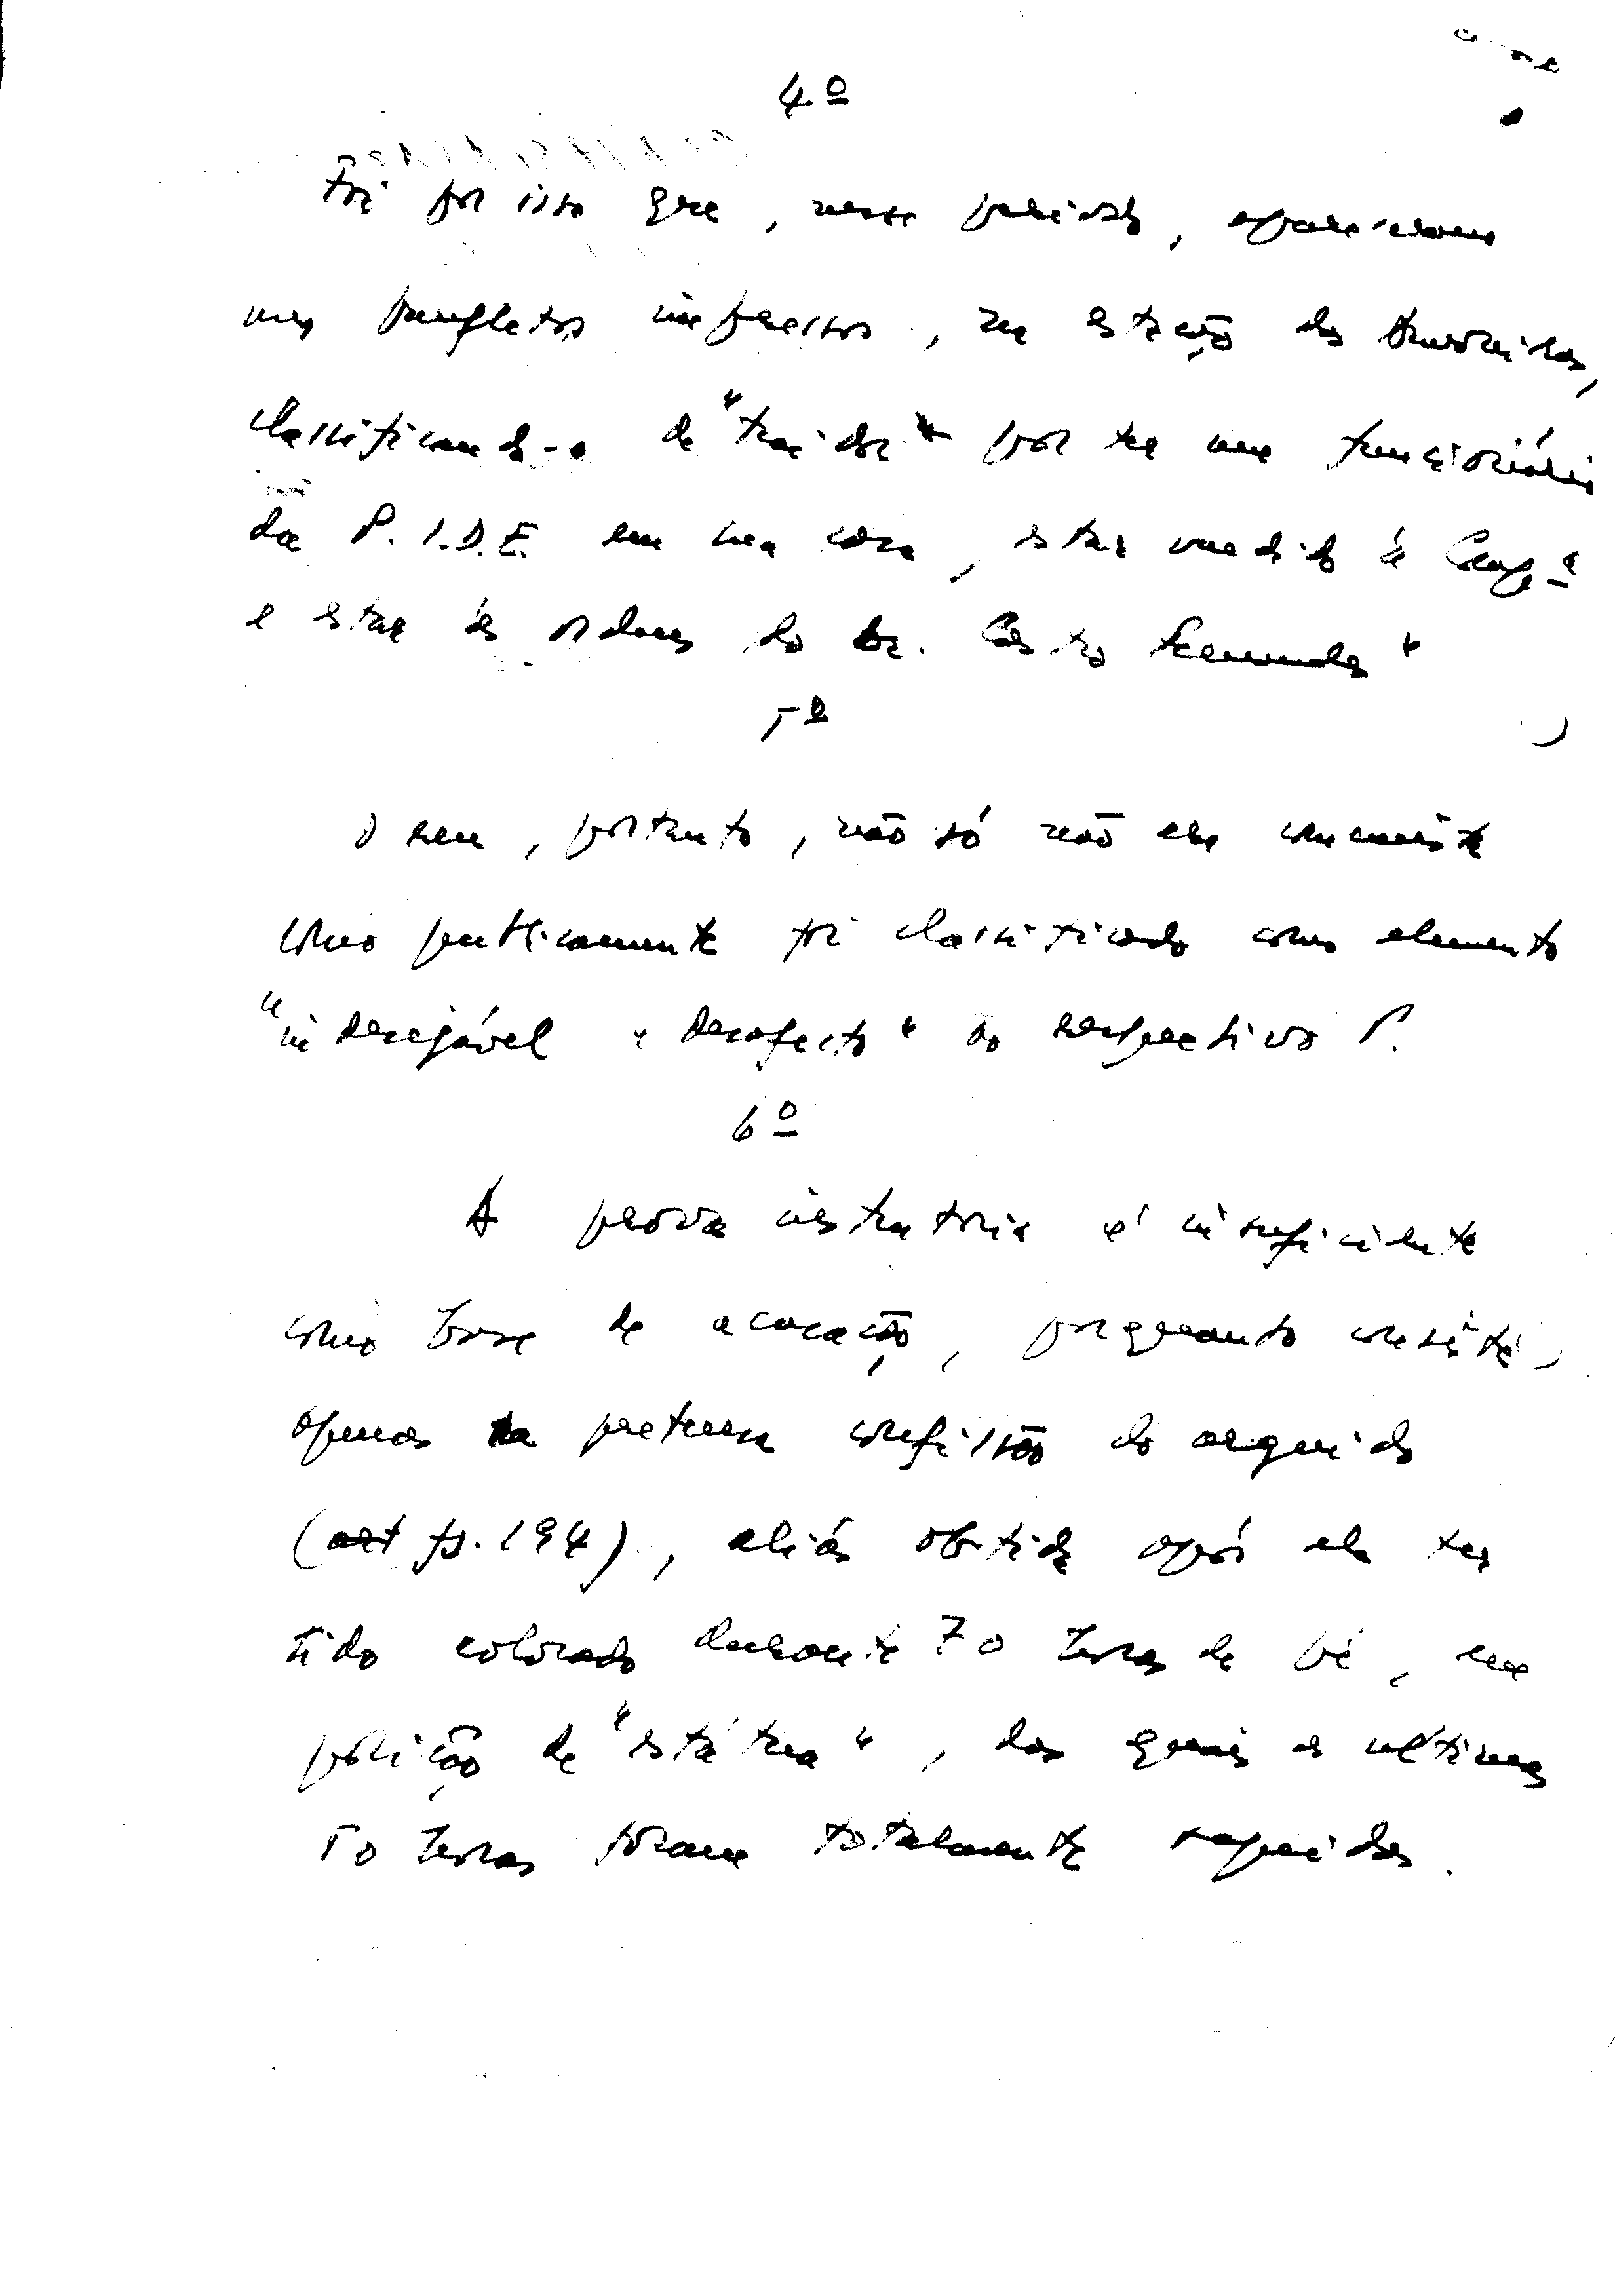 4º
Foi por isso que, nesse período, apareceram
uns panfletos impressos, na estação das Amoreiras,
classificando-o de "traidor" por ter um funcionário
da P.I.D.E. em sua casa, estar vendido à Comp.ª
e estar às ordens do Dr. Castro Fernandes"
5º
O réu, portanto, não só não era comunista
como publicamente foi classificado como elemento
"indesejável e desafecto" ao respectivo P.
6º
A prova instrutória é insuficiente
como base de acusação, porquanto consiste,
apenas na pretensa confissão do arguido
(fs. 194), aliás obtida após ele ter
sido colocado durante 70 horas de pé, na
posição de "estátua", das quais as últimas
50 horas foram totalmente seguidas.